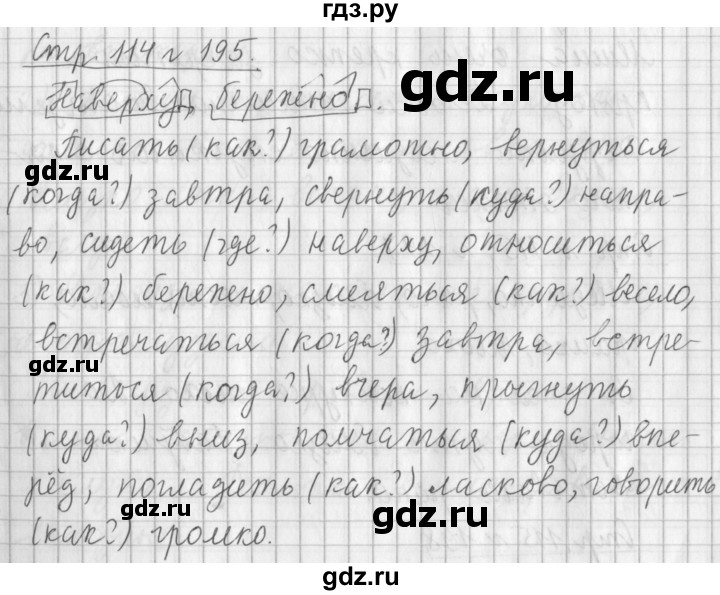 гдз.ру
Стр. 114 г 195.
Наверху, бережено.
Писать (как?) грамотно, вернуться
(когда?) завтра, свернуть (куда?) напра-
gdz.ru
во, сидеть (где?) наверху, относиться
(как?) бережено, смеяться (как?) весело,
gdz.ru
встречаться (когда?) завтра, встре-
gdz.ru
титься (когда?) вчера, прыгнуть
(куда?) вниз, помчаться (куда?) впе-
рёд, погладить (как?) ласково, говорить
gdz.ru
gdz.ru
(как?) громко.
gdz.ru